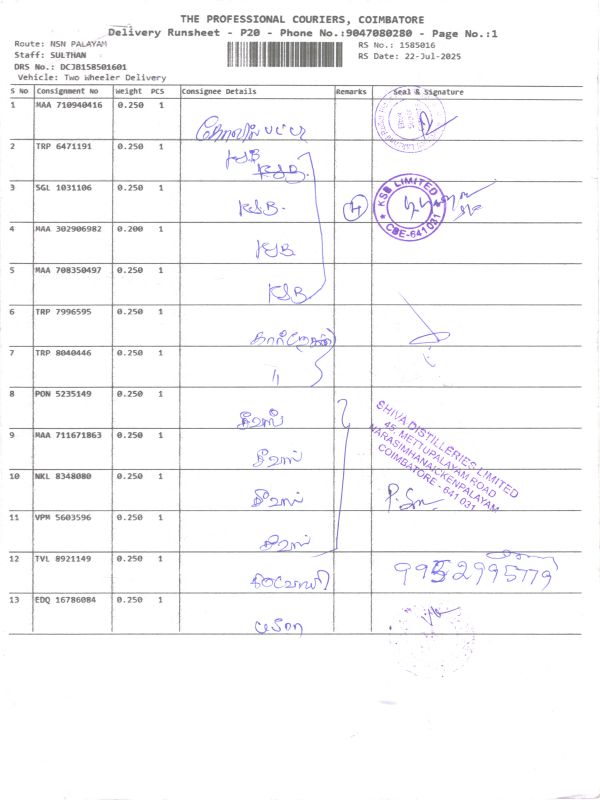 THE PROFESSIONAL COURIERS, COIMBATORE
Delivery Runsheet - P20 - Phone No.:9047080280 - Page No.:1
Route: NSN PALAYAM
RS No.: 1585016
Staff: SULTHAN
RS Date: 22-Jul-2025
DRS No.: DCJB158501601
Vehicle: Two Wheeler Delivery
S No Consignment No Weight PCS Consignee Details Remarks Seal & Signature
1 MAA 710940416 0.250 1
2 TRP 6471191 0.250 1 KSB
KSB.
3 SGL 1031106 0.250 1 KSB. 4
KSB LIMITED
CBE-641 031
4 MAA 302906982 0.200 1 KSB
5 MAA 708350497 0.250 1 KSB
6 TRP 7996595 0.250 1
7 TRP 8040446 0.250 1 11
8 PON 5235149 0.250 1
SHIVA DISTILLERIES LIMITED
45, METTUPALAYAM ROAD
NARASIMHANAICKENPALAYAM
COIMBATORE - 641 031
9 MAA 711671863 0.250 1
10 NKL 8348080 0.250 1
11 VPM 5603596 0.250 1
12 TVL 8921149 0.250 1 9952995779
13 EDQ 16786084 0.250 1